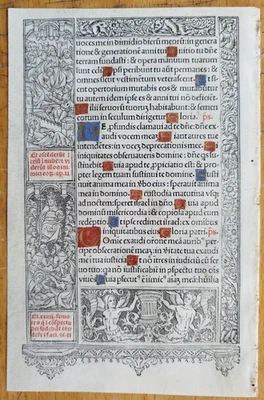 uoces me in dimidio dierũ meorũ: in genera
tione & generationẽ anni tui. Initio tu dñe
terram fundasti: & opera manuum tuarum
sunt celi. Ipsi peribunt tu aũt permanes: & om
nes sicut vestimẽtum veterascent. Et sicut
opertorium mutabis eos & mutabũtur
tu autem idem ipse es & anni tui nõ deficiẽt.
Filii seruorũ tuorũ habitabunt: & semen
eorum in seculum dirigetur. Gloria. ps.
De pfundis clamaui ad te dñe: dñe ex
audi vocem meam. Fiant aures tue
intendentes: in vocem deprecationis mee. Si
iniquitates obseruaueris domine: dñe quis su
stinebit. Quia apud te ppiciatio est: & pro
pter legem tuam sustinui te domine. Susti
nuit anima mea in verbo eius: sperauit anima
mea in domino. A custodia matutina vsq
ad noctem: speret israel in dño. Quia apud
dominum misericordia: & copiosa apud eum
redẽptio. Et ipse redimet israel: ex omnibus
iniquitatibus eius. Gloria patri. ps.
Domine exaudi orationẽ meã auribus per
cipe obsecrationẽ meã: in veritate tua exaudi
me in tua iustitia. Et non intres in iudiciũ cũ ser
uo tuo: quia nõ iustificabit in cõspectu tuo oĩs
viuẽs. Quia psecut' ẽ inimic' aĩaz meã: humilia